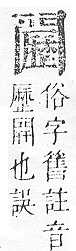 俗字舊註音
壓開也誤